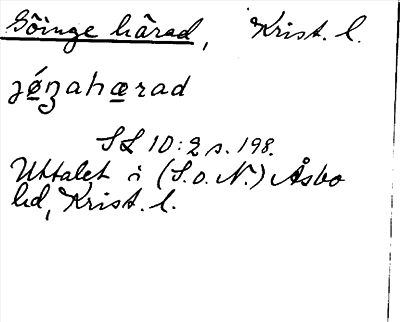 Göinge härad, Krist. l.
jǿꞑahærad
SL 10:2 s. 198.
Uttalet i (S. o. N.) Åsbo
hd, Krist. l.